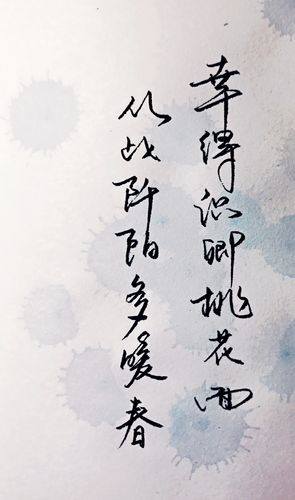 幸得识卿桃花面
从此阡陌多暖春